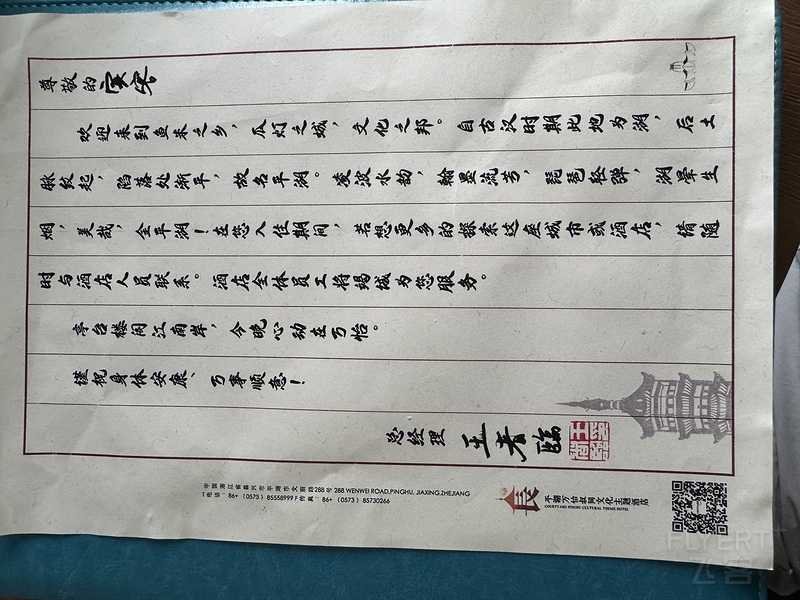 尊敬的宾客
欢迎来到鱼米之乡，瓜灯之城，文化之邦。自古汉时期此地为湖，后土
脉纹起，陷落处渐平，故名平湖。凌波水韵，翰墨流芳，琵琶轻弹，湖晕生
烟，美哉，金平湖！在您入住期间，若想更多的探索这座城市或酒店，请随
时与酒店人员联系。酒店全体员工将竭诚为您服务。
亭台楼阁江南岸，今晚心动在万怡。
谨祝身体安康、万事顺意！
总经理
中国浙江省嘉兴市平湖市文蔚路288号 288 WENWEI ROAD,PINGHU, JIAXING,ZHEJIANG
电话：86+ (0573) 85558999 传真：86+ (0573) 85730266
平湖万怡叔同文化主题酒店
COURTYARD PINGHU CULTURAL THEME HOTEL
FLYERT